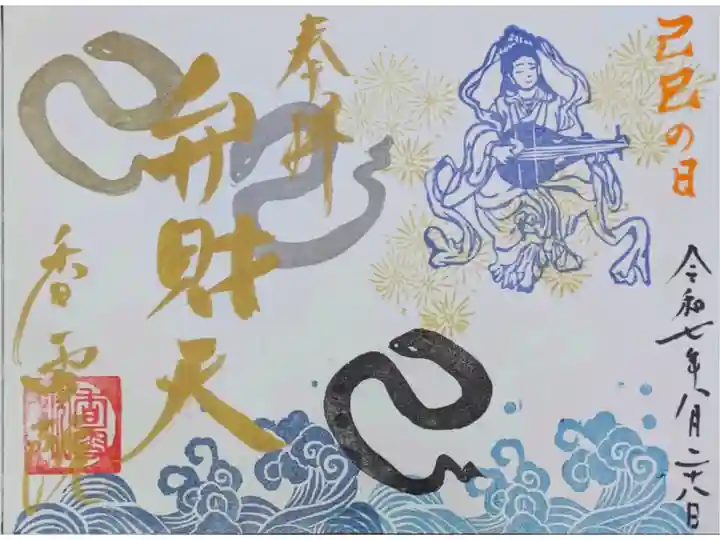 己巳の日
令和七年八月二十八日
奉拝
弁財天
香雲院
香雲